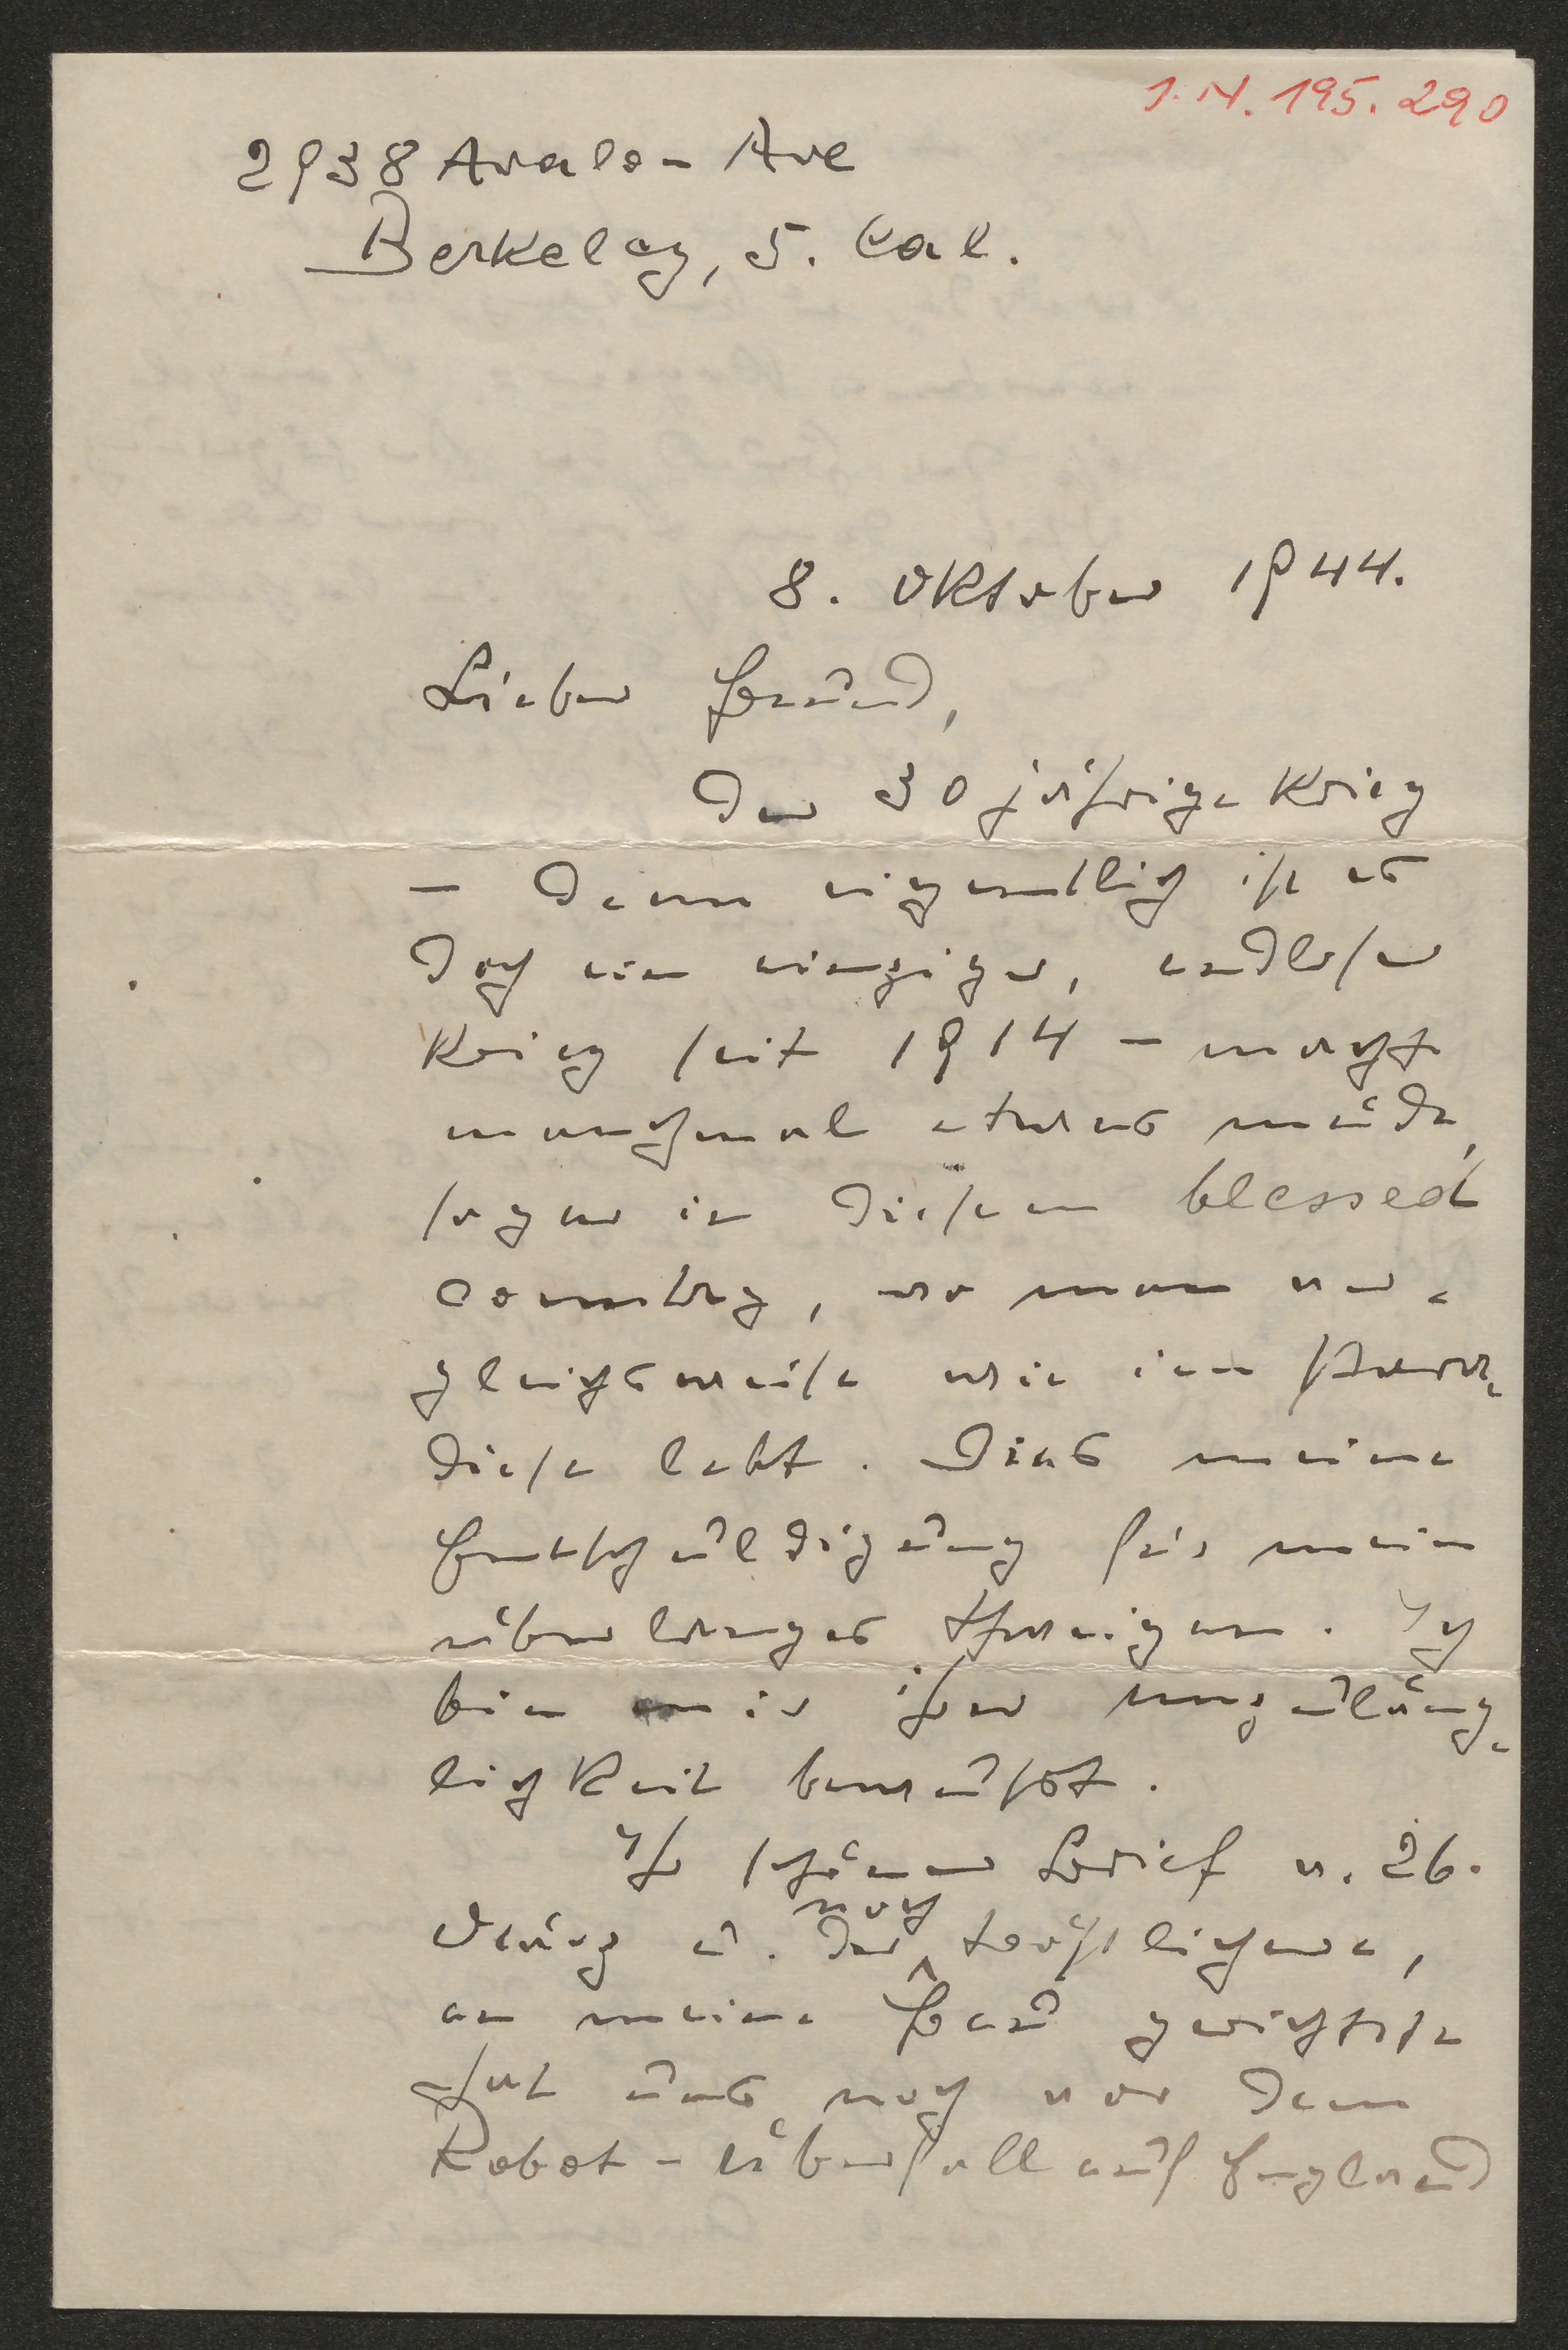 I.N. 195.290
2938 Avalon Ave
Berkeley, 5. Cal.
8. Oktober 1944.
Lieber Freund,
Der 30 jährige Krieg
– denn eigentlich ist es
doch ein einziger, endloser
Krieg seit 1914 – macht
manchmal etwas müde,
sogar in diesem blessed
country, wo man ver-
gleichsweise wie im Para-
diese lebt. Dies meine
Entschuldigung für mein
überlanges Schweigen. Ich
bin mir ihrer Unzuläng-
lichkeit bewußt.
Ihr schöner Brief v. 26.
März u. der noch tröstlichere,
an meine Frau gerichtete
hat uns noch vor dem
Robot-Überfall auf England